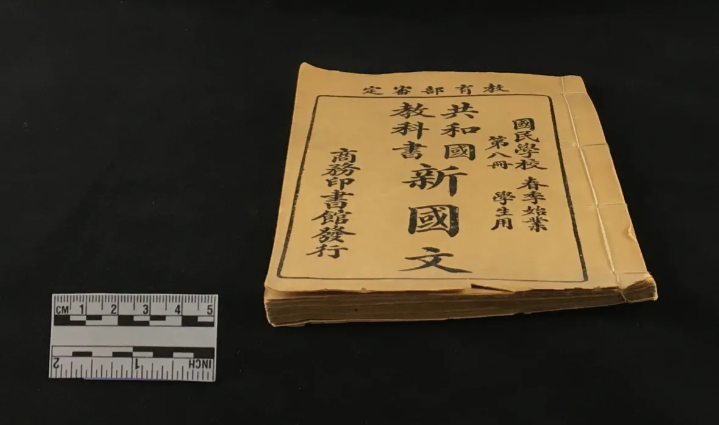 教育部審定
國民學校 春季始業
第八冊 學生用
共和國
教科書
新國文
商務印書館發行
CM 1 2 3 4 5
INCH 1 2